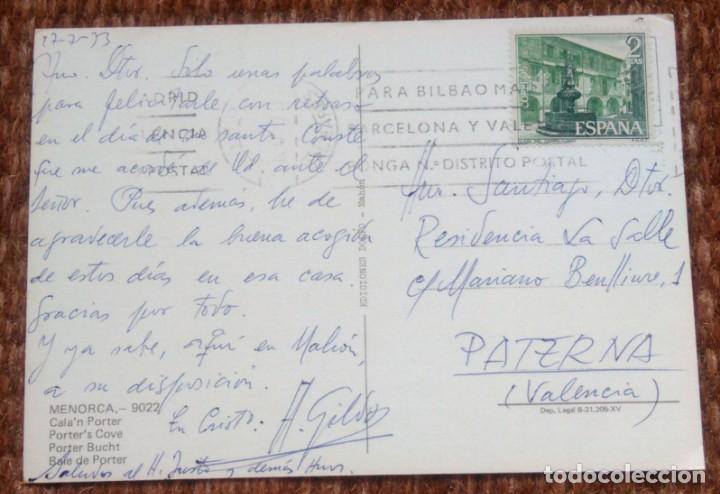 27-7-73
Hno. Dtor. Sólo unas palabras
para felicitarle, con retraso
en el día de su santo. Conste
que me acordé de Ud. ante el
Señor. Pues además, he de
agradecerle la buena acogida
de estos días en esa casa.
Gracias por todo.
Y ya sabe, aquí en Mahón,
a su disposición.
En Cristo.
Saludos al H. Justo y demás Hnos.
MENORCA.- 9022
Cala'n Porter
Porter's Cove
Porter Bucht
Baie de Porter
PARA BILBAO MA
BARCELONA Y VALE
PONGA N.º DISTRITO POSTAL
2
PTAS
ESPAÑA
Hno. Santiago, Dtor.
Residencia La Salle
c/ Mariano Benlliure, 1
PATERNA
(Valencia)
Dep. Legal B-21.205-XV